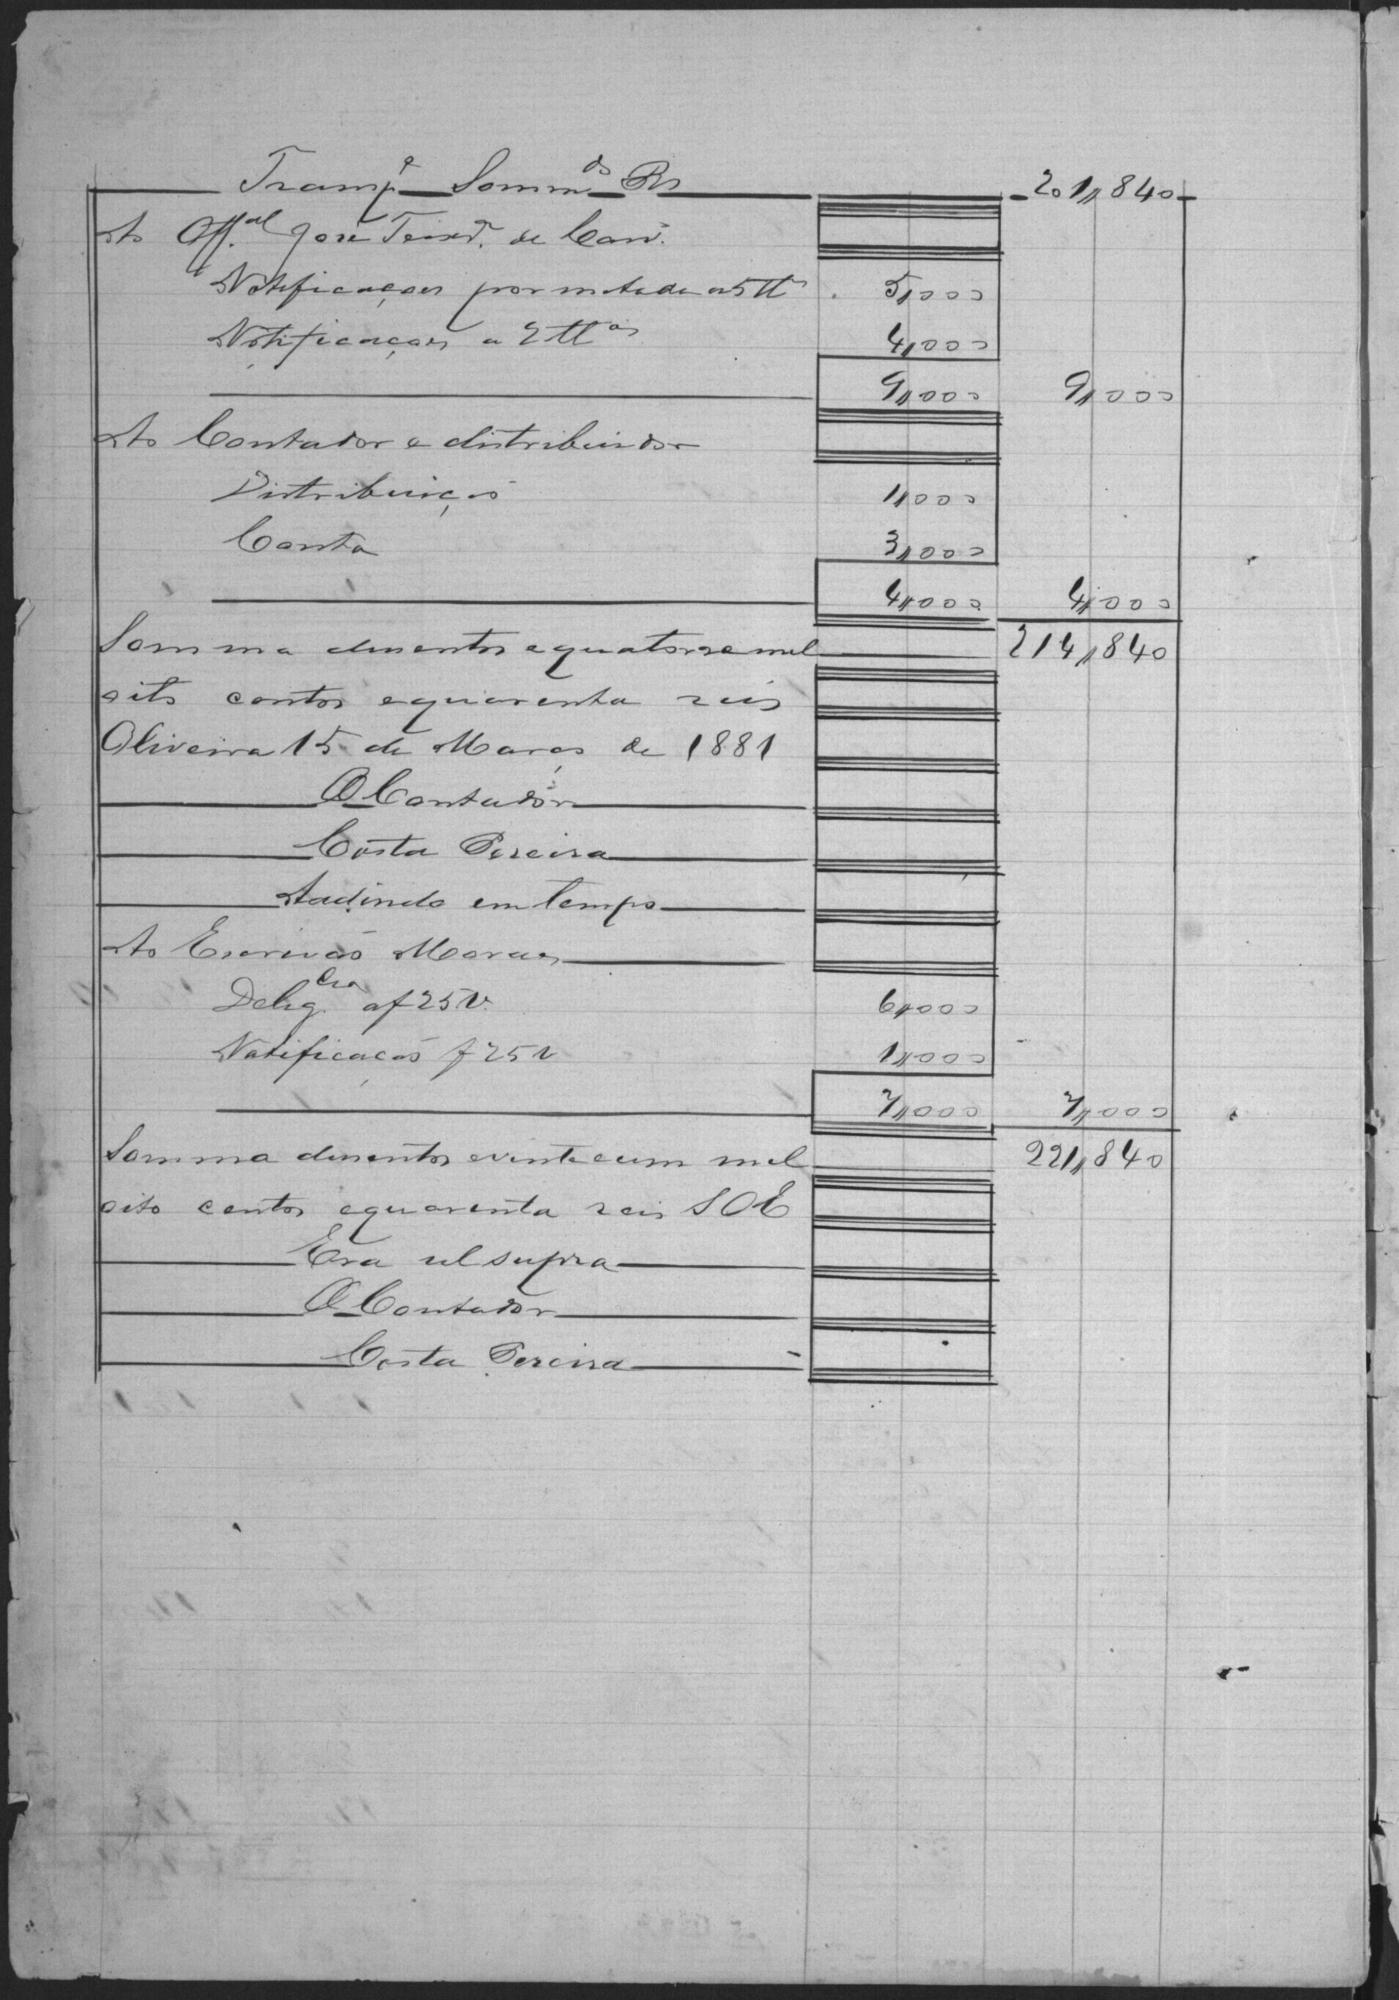 Transp.e Somm.do Rs 201,,840
Ao Off.al José Teixr.ª de Carv.
Notificações por metade a 5 tt 5,,000
Notificações a 2 tt.as 4,,000
9,,000 9,,000
Ao Contador e distribuidor
Distribuição 1,,000
Conta 3,,000
4,,000 4,,000
Somma dusentos e quatorze mil 214,,840
oito centos e quarenta reis
Oliveira 15 de Março de 1881
O Contador
Costa Pereira
Aadindo em tempo
Ao Escrivão Moraes
Delig.cia af 25 v. 6,,000
Notificação f 25 v 1,,000
7,,000 7,,000
Somma dusentos e vinte e um mil 221,,840
oito centos e quarenta reis S O E
Era ut supra
O Contador
Costa Pereira